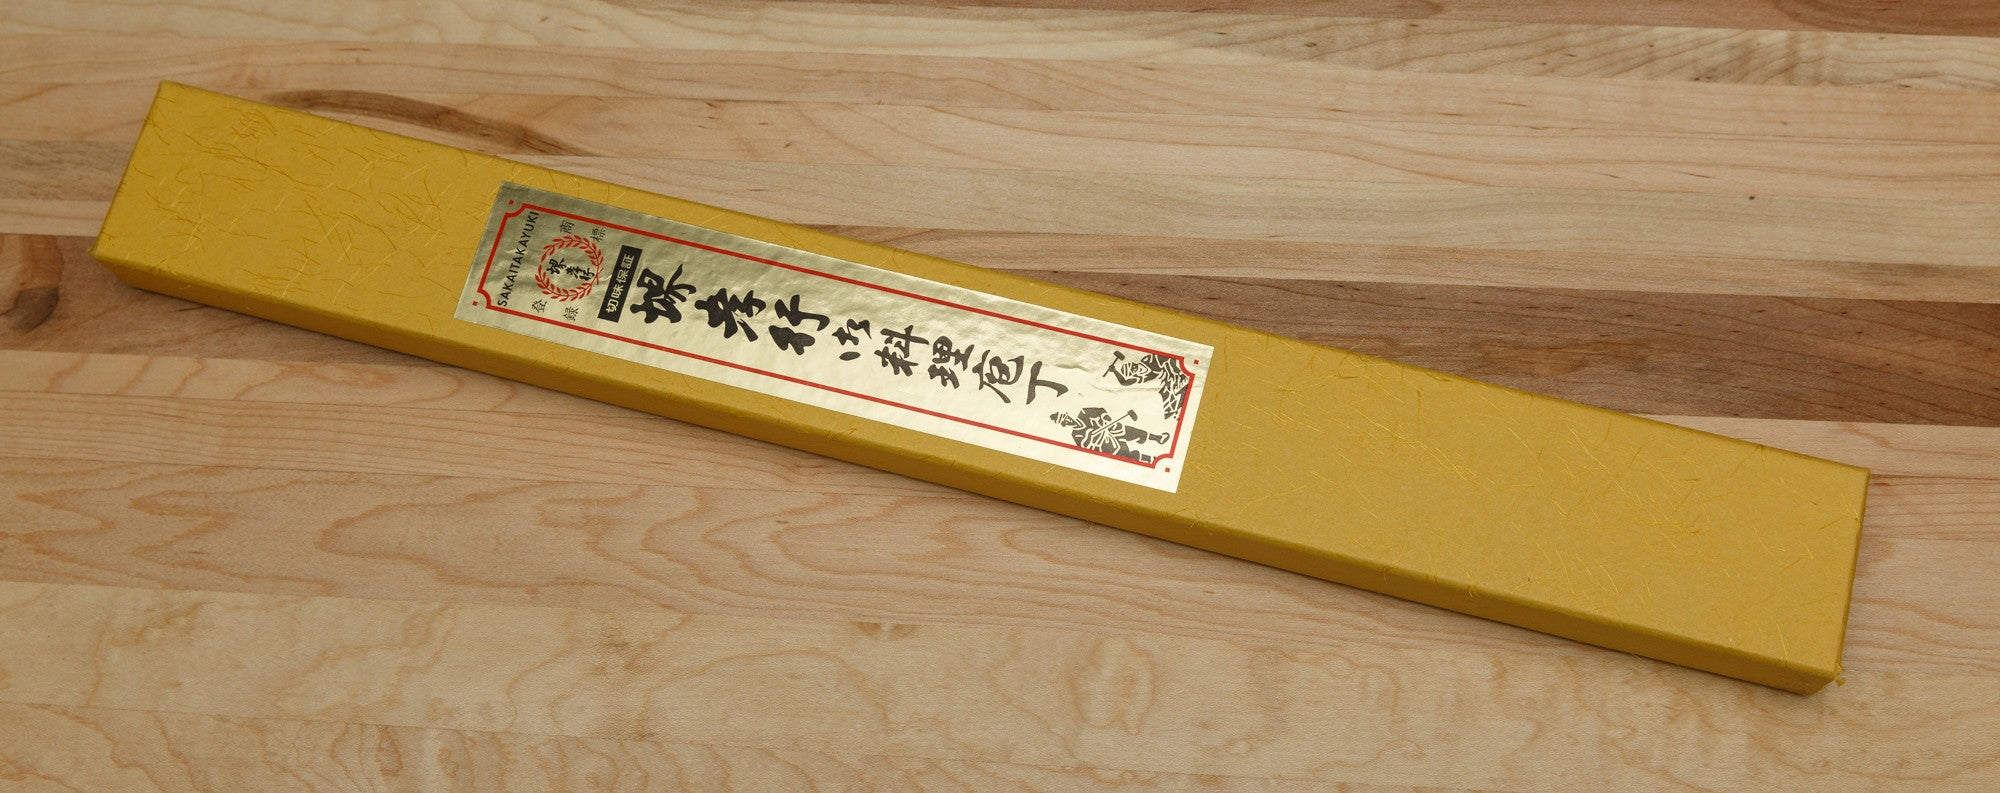 SAKAITAKAYUKI
商標
堺孝行
登録
切味保証
堺孝行御料理庖丁